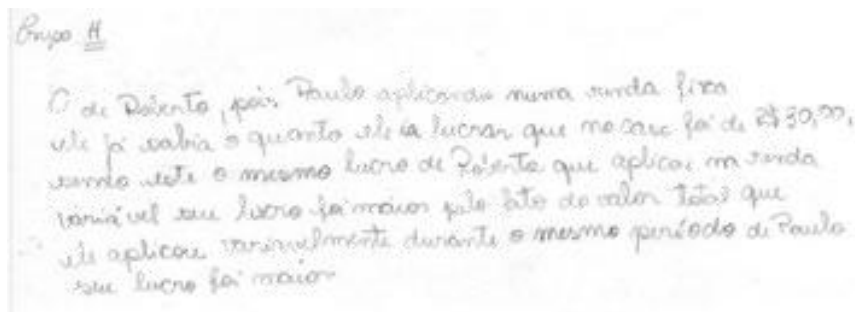 Grupo H
O de Roberto, pois Paulo aplicando numa renda fixa
ele já sabia o quanto ele ia lucrar que no caso foi de R$30,00,
sendo este o mesmo lucro de Roberto que aplicou na renda
variável seu lucro foi maior pelo fato do valor total que
ele aplicou variavelmente durante o mesmo período de Paulo
seu lucro foi maior